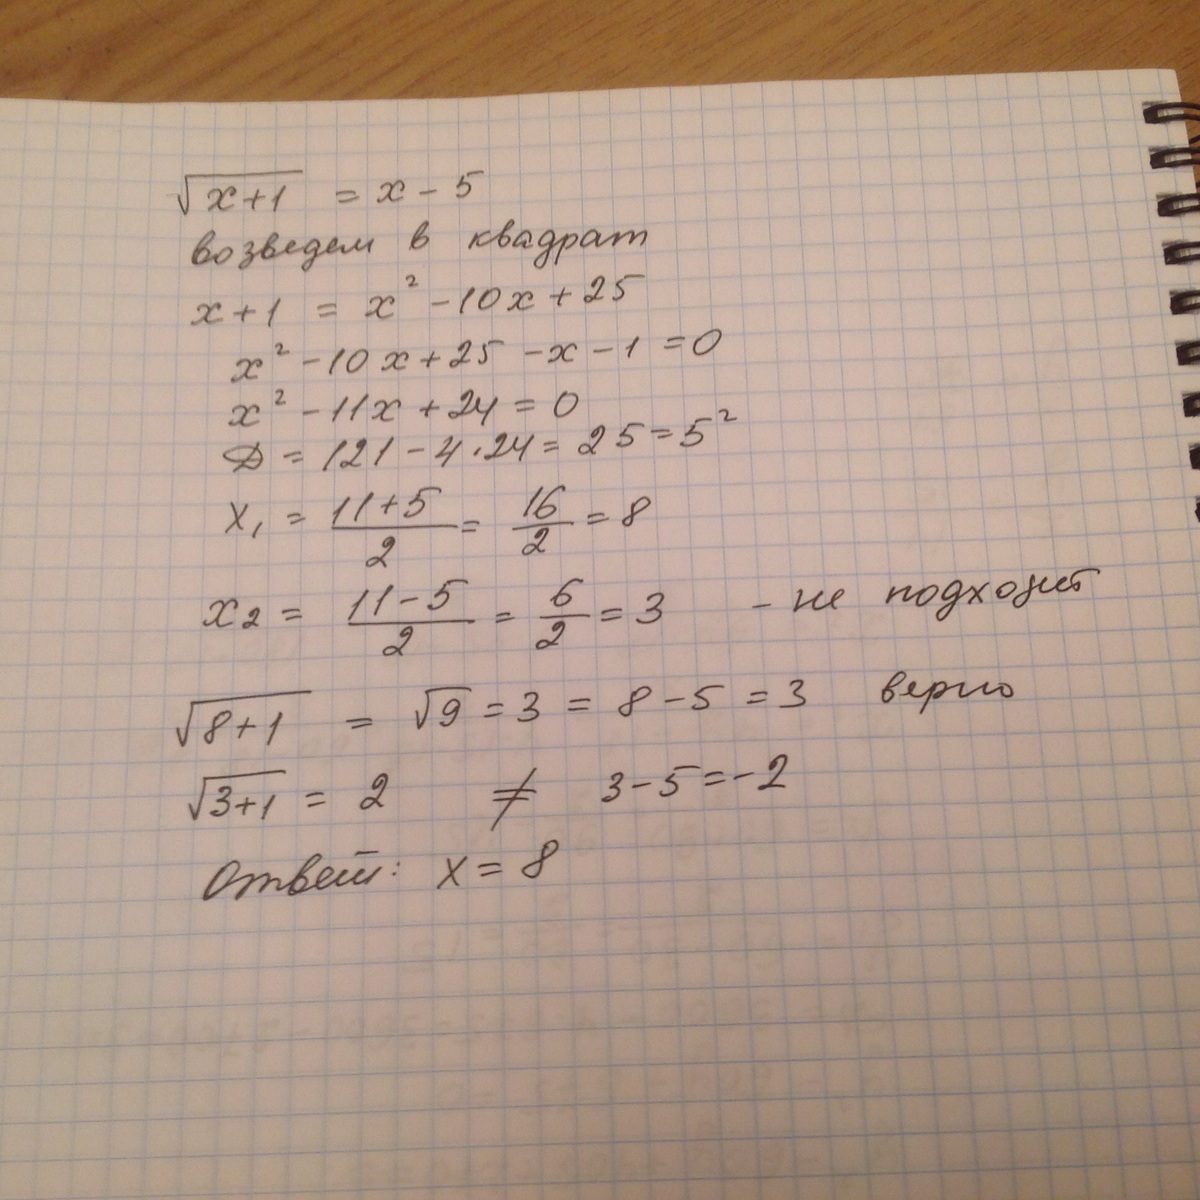 √(x+1) = x - 5
возведем в квадрат
x+1 = x² - 10x + 25
x² - 10x + 25 - x - 1 = 0
x² - 11x + 24 = 0
D = 121 - 4·24 = 25 = 5²
x₁ = (11+5)/2 = 16/2 = 8
x₂ = (11-5)/2 = 6/2 = 3 - не подходит
√(8+1) = √9 = 3 = 8 - 5 = 3 верно
√(3+1) = 2 ≠ 3-5 = -2
Ответ: x = 8